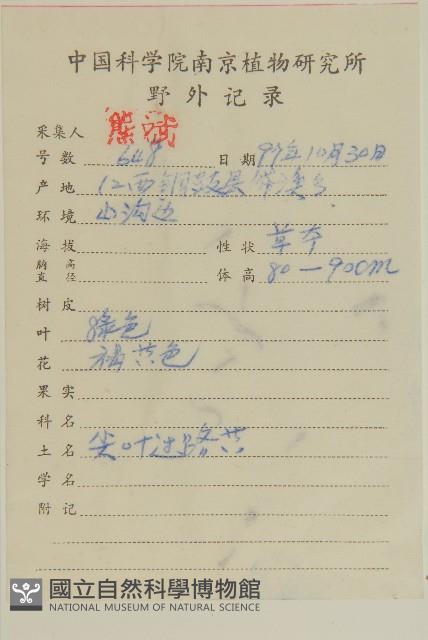 中国科学院南京植物研究所
野外记录
采集人 熊斌
号数 648 日期 99年10月30日
产地 江西铜鼓县
环境 山沟边
海拔 性状 草本
胸高直径 体高 80—90cm
树皮
叶 绿色
花 褐黄色
果实
科名
土名 尖叶过路黄
学名
附记
國立自然科學博物館
NATIONAL MUSEUM OF NATURAL SCIENCE